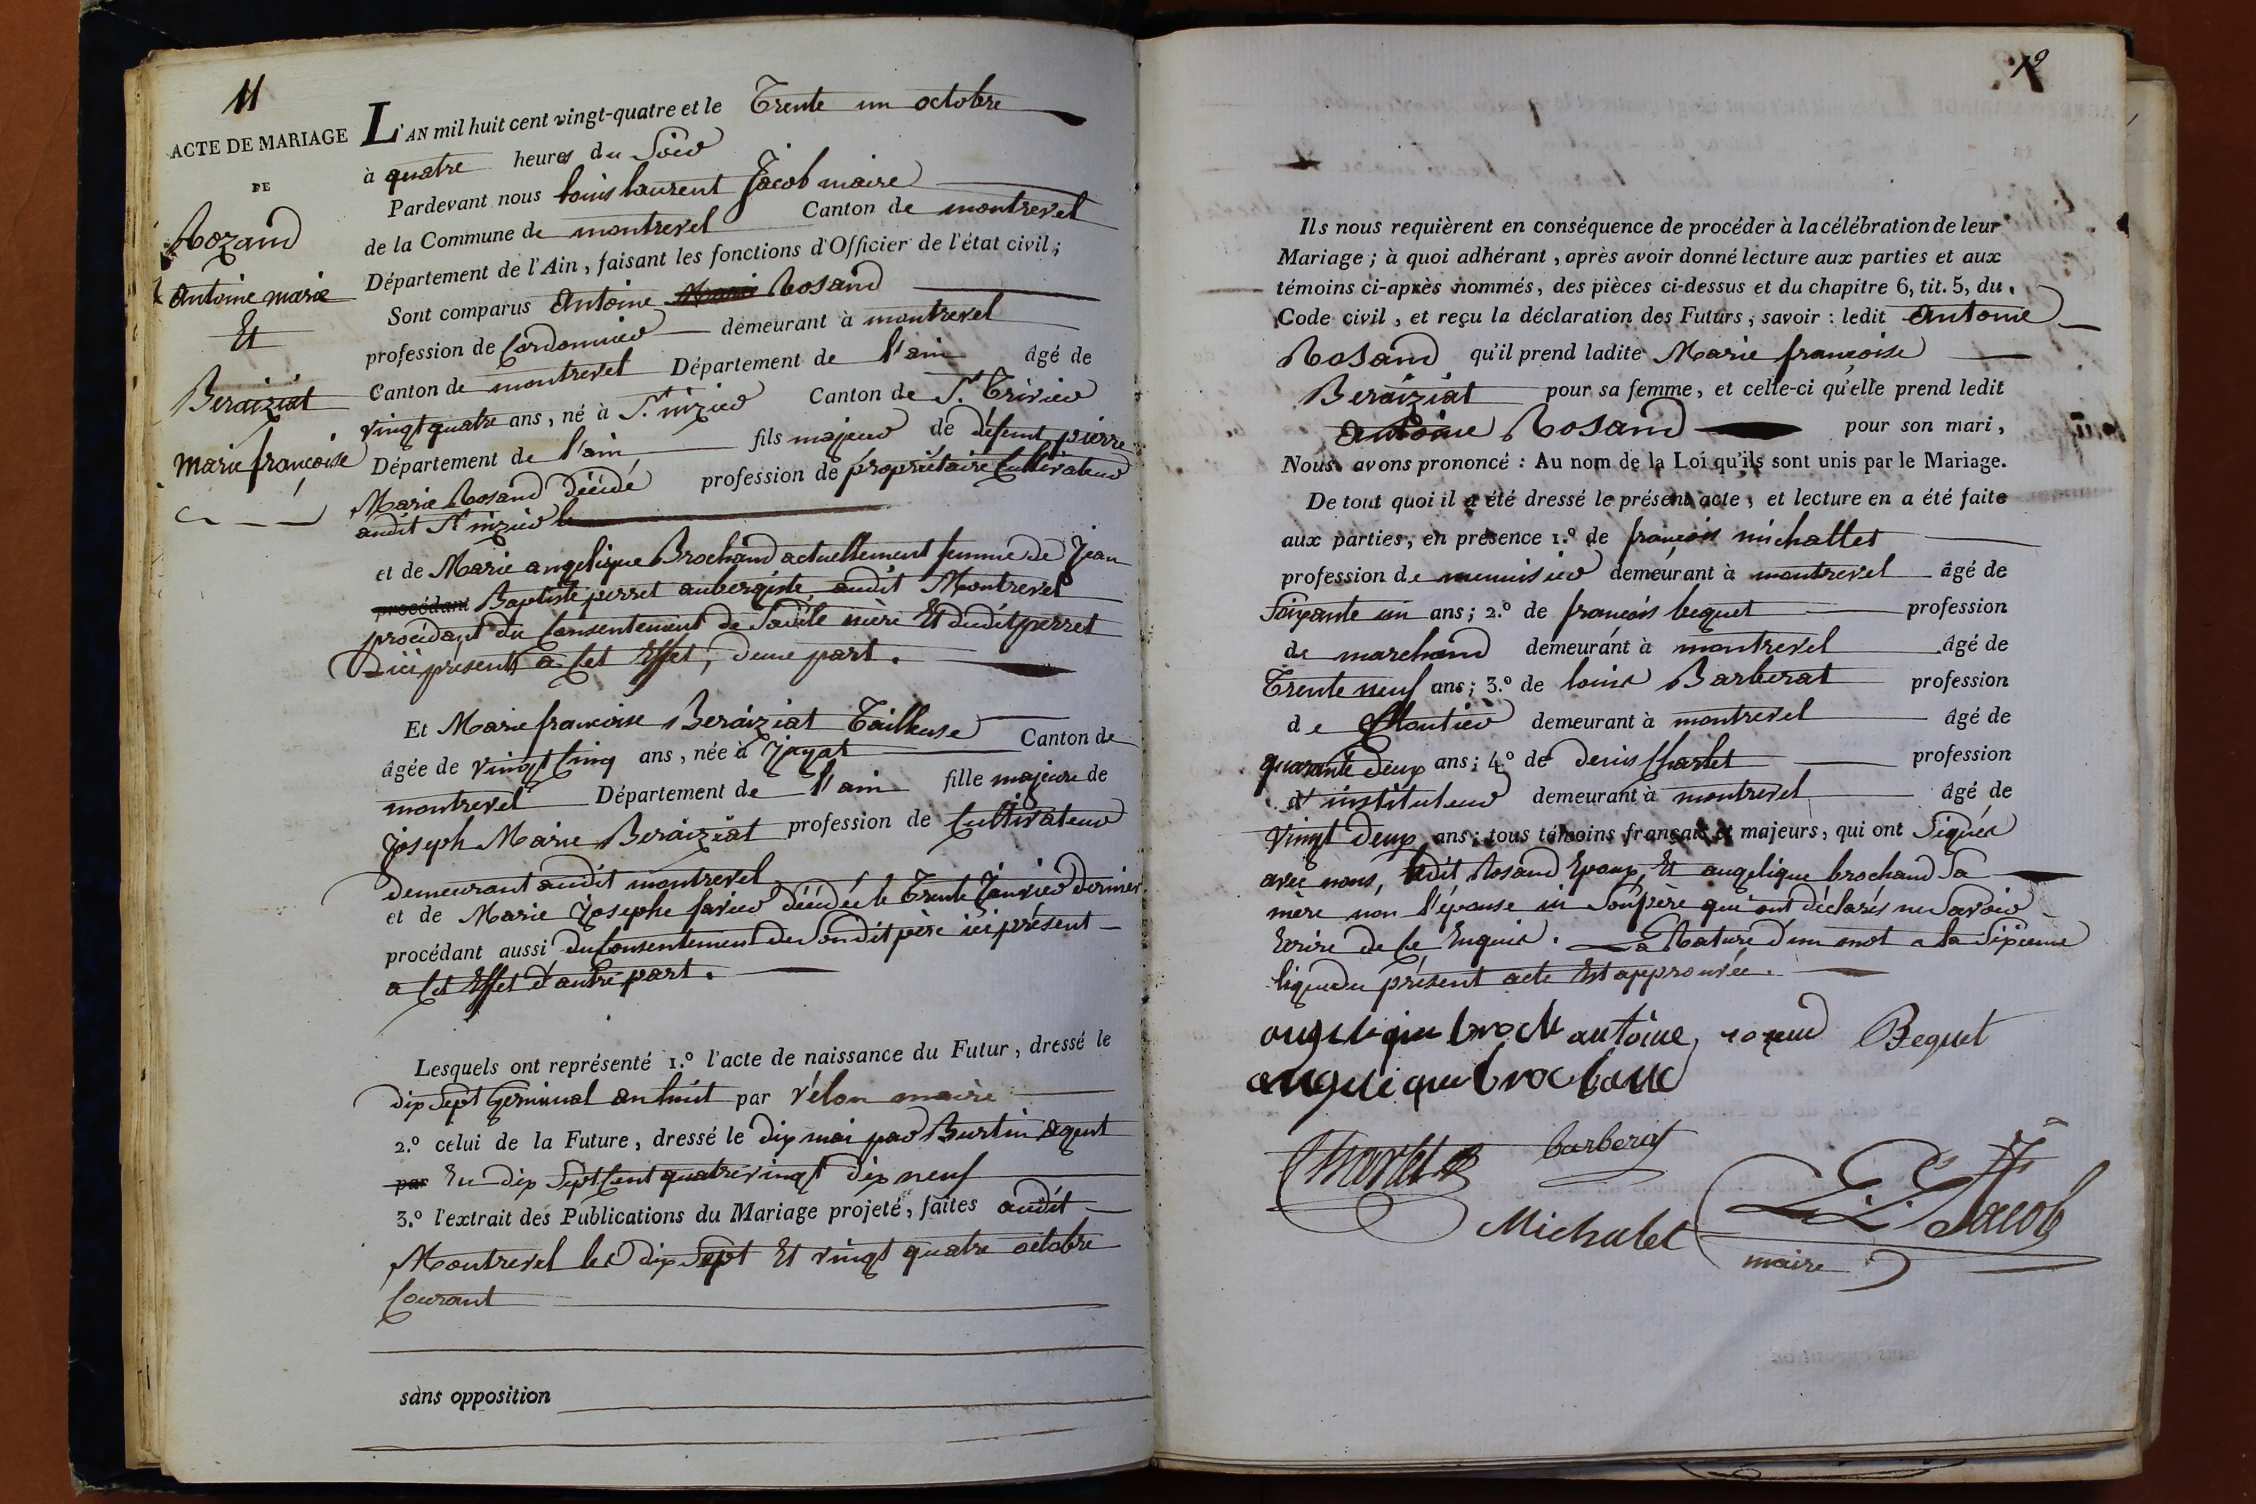 11
ACTE DE MARIAGE
DE
Rozand
Antoine marie
Et
Beraiziat
Marie françoise
L'AN mil huit cent vingt-quatre et le Trente un octobre
à quatre heures du Soir
Pardevant nous louis laurent Jacob maire
de la Commune de montrevel Canton de montrevel
Département de l'Ain, faisant les fonctions d'Officier de l'état civil;
Sont comparus Antoine Marie Rosand
profession de Cordonnier demeurant à montrevel
Canton de montrevel Département de l'ain âgé de
vingt quatre ans, né à St. nizier Canton de St. Trivier
Département de l'ain fils majeur de défunt pierre
Marie Rosand décédé profession de propriétaire Cultivateur
audit St nizier
et de Marie angelique Brochand actuellement femme de Jean
procédant Baptiste perret aubergiste audit Montrevel
procédant du Consentement de Sadite mère Et dudit perret
ici présents a Cet Effet, dune part.
Et Marie françoise Beraiziat Tailleuse
âgée de vingt Cinq ans, née à Jayat Canton de
montrevel Département de l'ain fille majeure de
Joseph Marie Beraiziat profession de Cultivateur
demeurant audit montrevel
et de Marie Josephe favier décédée le Trente Janvier dernier
procédant aussi du Consentement de Sondit père ici présent
a Cet Effet d'autre part.
Lesquels ont représenté 1.º l'acte de naissance du Futur, dressé le
dix Sept Germinal an huit par vélon maire
2.º celui de la Future, dressé le dix mai par Burtin agent
par En dix Sept Cent quatre vingt dix neuf
3.º l'extrait des Publications du Mariage projeté, faites audit
Montrevel les dix Sept Et vingt quatre octobre
Courant
sans opposition
12
Ils nous requièrent en conséquence de procéder à la célébration de leur
Mariage; à quoi adhérant, après avoir donné lecture aux parties et aux
témoins ci-après nommés, des pièces ci-dessus et du chapitre 6, tit. 5, du
Code civil, et reçu la déclaration des Futurs, savoir: ledit Antoine
Rosand qu'il prend ladite Marie françoise
Beraiziat pour sa femme, et celle-ci qu'elle prend ledit
Antoine Rosand pour son mari,
Nous avons prononcé: Au nom de la Loi qu'ils sont unis par le Mariage.
De tout quoi il a été dressé le présent acte, et lecture en a été faite
aux parties, en présence 1.º de françois michallet
profession de menuisier demeurant à montrevel âgé de
Soixante un ans; 2.º de françois bequet profession
de marchand demeurant à montrevel âgé de
Trente neuf ans; 3.º de louis Barberat profession
de demeurant à montrevel âgé de
quarante deux ans; 4.º de denis Charlet profession
d'instituteur demeurant à montrevel âgé de
vingt deux ans; tous témoins français et majeurs, qui ont Signés
avec nous, ledit Rosand Epoux, Et angelique brochand Sa
mère non l'épouse ni Son père qui ont déclarés ne Savoir
Ecrire de Ce Enquis. La Rature d'un mot a la Sixieme
ligne du présent acte Est approuvée.
angelique broch antoine rozand Bequet
angelique brochand
Charlet barberat
Michalet L. L. Jacob
maire